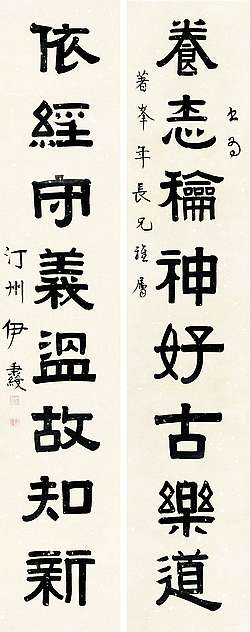 書為
養志龢神好古樂道
著峯年長兄雅屬
依經守義溫故知新
汀州伊秉綬